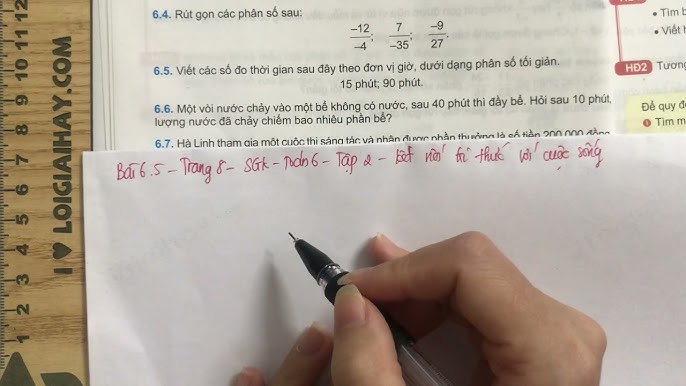 6.4. Rút gọn các phân số sau:
-12/-4; 7/-35; -9/27.
6.5. Viết các số đo thời gian sau đây theo đơn vị giờ, dưới dạng phân số tối giản.
15 phút; 90 phút.
6.6. Một vòi nước chảy vào một bể không có nước, sau 40 phút thì đầy bể. Hỏi sau 10 phút,
lượng nước đã chảy chiếm bao nhiêu phần bể?
6.7. Hà Linh tham gia một cuộc thi sáng tác và nhận được phần thưởng là số tiền 200 000 đồng.
• Tìm b
• Viết
HĐ2 Tương
Để quy đ
Tìm m
Bài 6.5 - Trang 8 - SGK - Toán 6 - Tập 2 - Kết nối tri thức với cuộc sống
I ♥ LOIGIAIHAY.COM
1 2 3 4 5 6 7 8 9 10 11 12